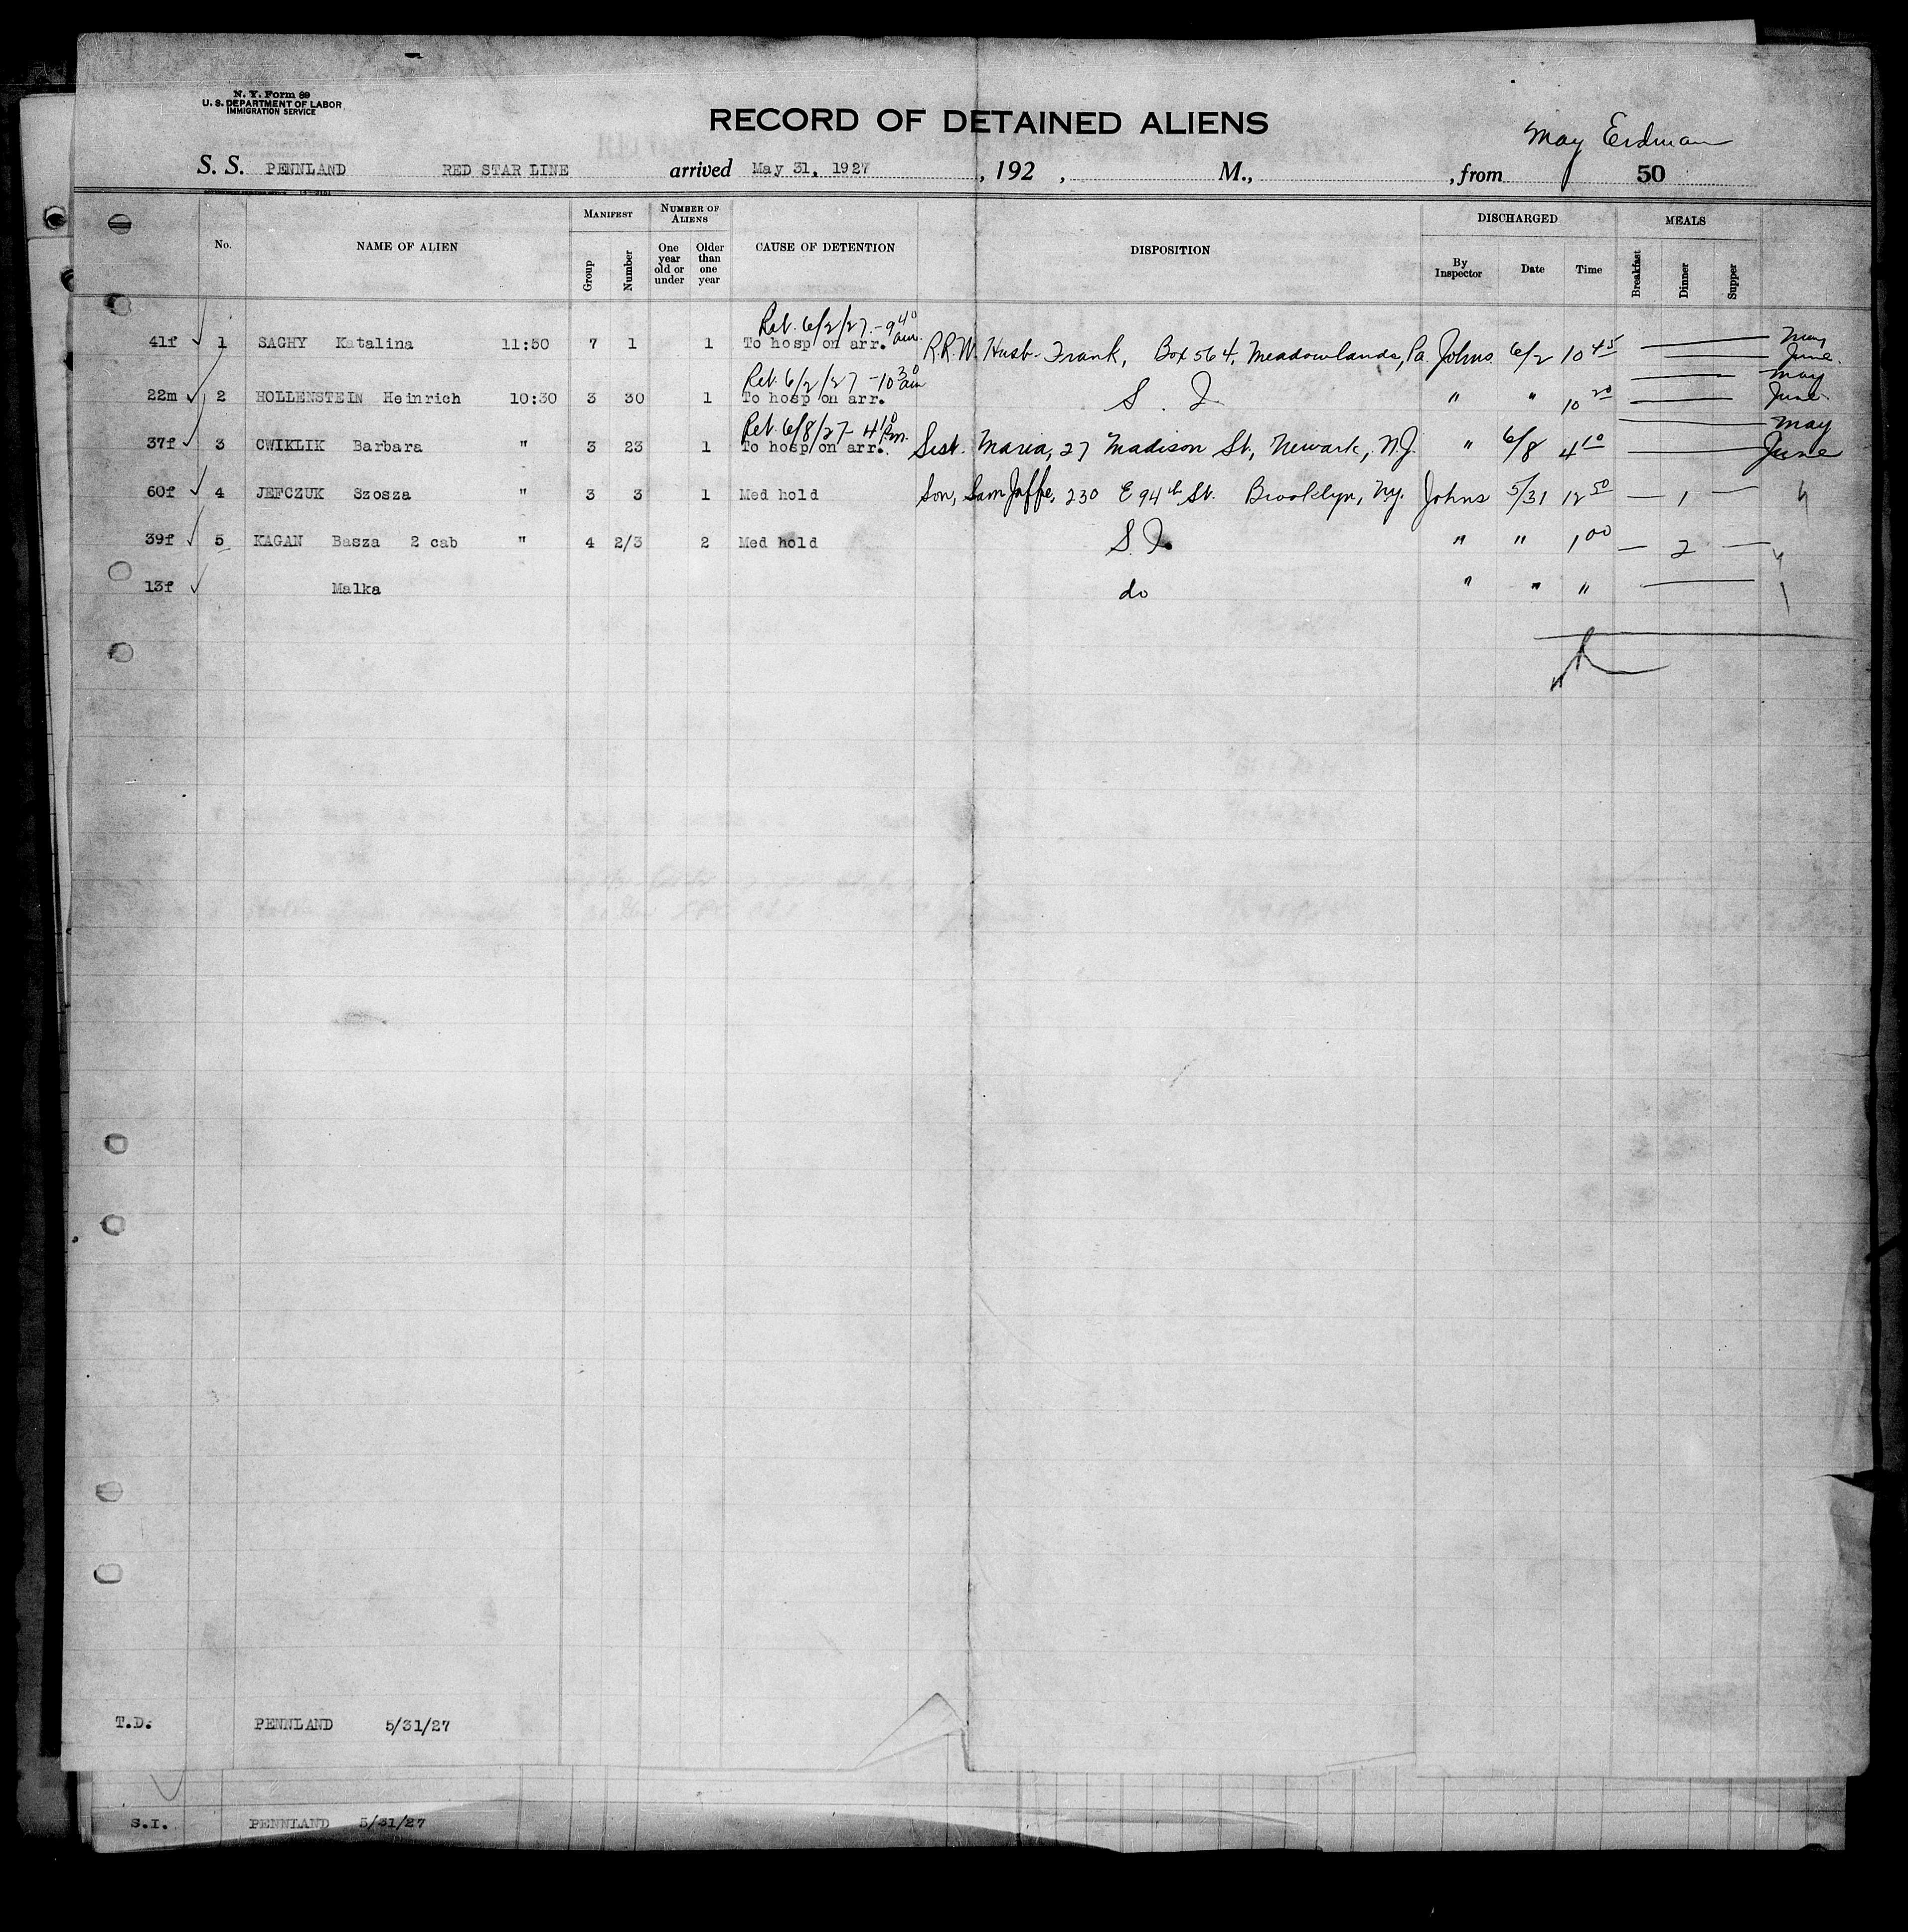 N. Y. Form 89
U. S. DEPARTMENT OF LABOR
IMMIGRATION SERVICE
RECORD OF DETAINED ALIENS
May Erdman
S. S. PENNLAND RED STAR LINE arrived May 31, 1927, 192 , M., , from 50
No. NAME OF ALIEN MANIFEST Group Number NUMBER OF ALIENS One year old or under Older than one year CAUSE OF DETENTION DISPOSITION DISCHARGED By Inspector Date Time MEALS Breakfast Dinner Supper
Ret. 6/2/27 - 9 40 am. May
41f 1 SAGHY Katalina 11:50 7 1 1 To hosp on arr. R.R.W. Husb - Frank, Box 564, Meadowlands, Pa. Johns 6/2 10 45 June
Ret. 6/2/27 - 10 30 am May
22m 2 HOLLENSTEIN Heinrich 10:30 3 30 1 To hosp on arr. S. I. " " 10 20 June
Ret. 6/8/27 - 4 10 Pm. May
37f 3 CWIKLIK Barbara " 3 23 1 To hosp on arr. Sist. Maria, 27 Madison St., Newark, N.J. " 6/8 4 10 June
60f 4 JEFCZUK Szosza " 3 3 1 Med hold Son, Sam Jaffe, 230 E 94th St. Brooklyn, Ny. Johns 5/31 12 50 — 1 —
39f 5 KAGAN Basza 2 cab " 4 2/3 2 Med hold S. I. " " 1 00 — 2 —
13f Malka do " " "
T.D. PENNLAND 5/31/27
S.I. PENNLAND 5/31/27